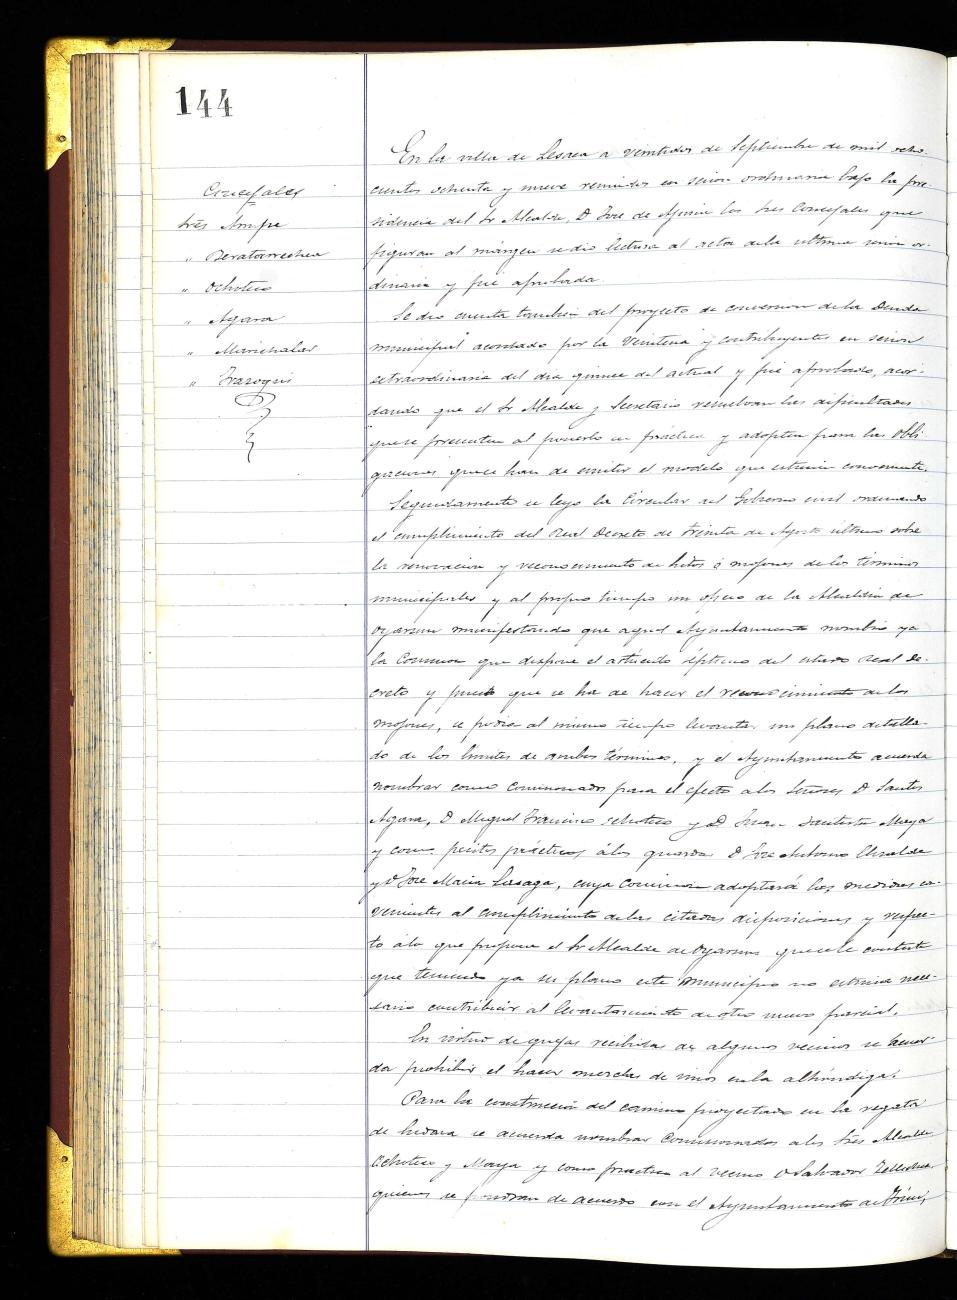 144
Concejales
Sres Arripe
" Peratarrechea
" Ochoteco
" Agara
" Marichalar
" Irazoqui
En la villa de Lesaca a veintidos de Septiembre de mil ocho-
cientos ochenta y nueve reunidos en sesion ordinaria bajo la pre-
sidencia del Sr Alcalde, D Jose de los Sres Concejales que
figuran al márgen se dio lectura al acta de la ultima sesion or-
dinaria y fue aprobada.
Se dio cuenta tambien del proyecto de conversion de la Deuda
municipal acordado por la Veintena y contribuyentes en sesion
extraordinaria del dia quince del actual y fué aprobado, acor-
dando que el Sr Alcalde y Secretario resuelvan las dificultades
que se presenten al ponerlo en práctica y adopten para las obli-
gaciones que se han de emitir el modelo que estimen conveniente.
Seguidamente se leyo la Circular del Gobierno civil ordenando
el cumplimiento del Real Decreto de treinta de Agosto ultimo sobre
la renovacion y reconocimiento de hitos ó mojones de los términos
municipales y al propio tiempo un oficio de la Alcaldia de
Oyarzun manifestando que aquel Ayuntamiento nombró ya
la Comision que dispone el articulo séptimo del citado Real De-
creto y puesto que se ha de hacer el reconocimiento de los
mojones, se podia al mismo tiempo levantar un plano detalla-
do de los limites de ambos términos, y el Ayuntamiento acuerda
nombrar como comisionados para el efecto a los Señores D Santos
Agara, D Miguel Francisco Ochoteco y D Juan Bautista Maya
y como peritos prácticos á los guardas D Jose Antonio
y D Jose Maria Lasaga, cuya Comision adoptará las medidas con-
venientes al cumplimiento de las citadas disposiciones y respec-
to á lo que propone el Sr Alcalde de Oyarzun que se le conteste
que teniendo ya su plano este municipio no estima nece-
sario contribuir al levantamiento de otro nuevo parcial.
En virtud de quejas recibidas de algunos vecinos se acuer-
da prohibir el hacer mezclas de vinos en la alhóndiga.
Para la construccion del camino proyectado en la regata
de se acuerda nombrar Comisionados a los Sres Alcalde
Ochoteco y Maya y como práctico al vecino D Salvador Tellechea
quienes se pondran de acuerdo con el Ayuntamiento de